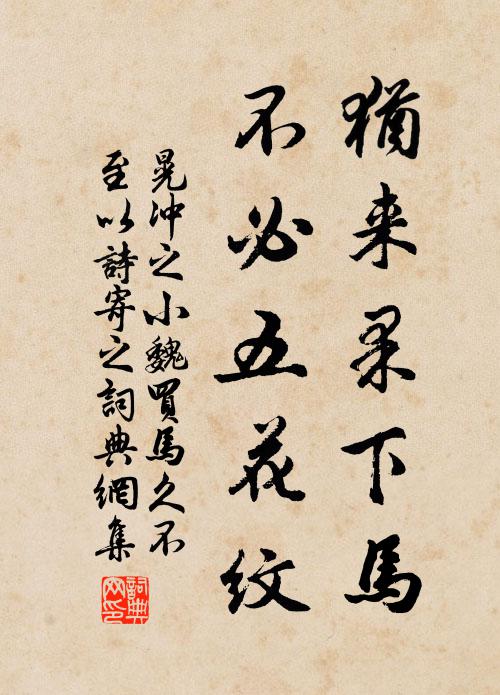 猶来果下馬
不必五花紋
晁冲之小魏買馬久不
至以詩寄之詞典網集
詞典
网印